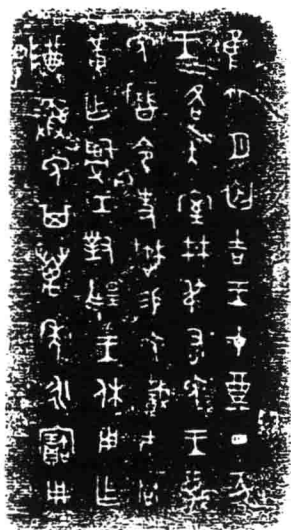 隹六月初吉王才奠丁亥
王各大室井叔右免王蔑
免曆令史懋易免市冋
黃乍𤔲工對揚王休用乍
尊彝免其萬年永寶用